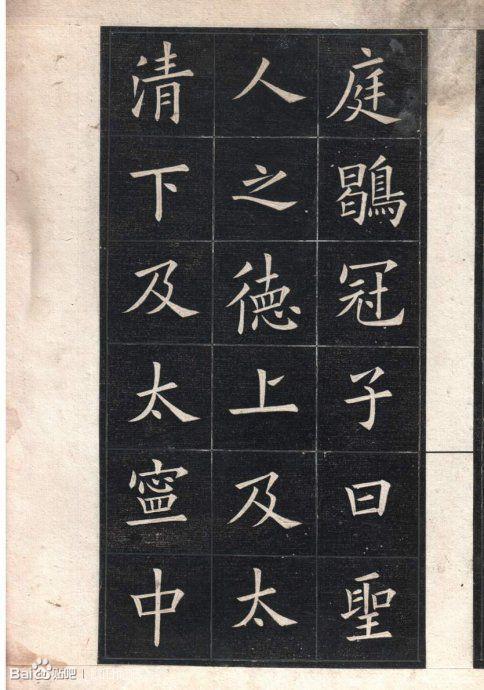 庭鶡冠子曰聖
人之徳上及太
清下及太寍中
Bai贴吧